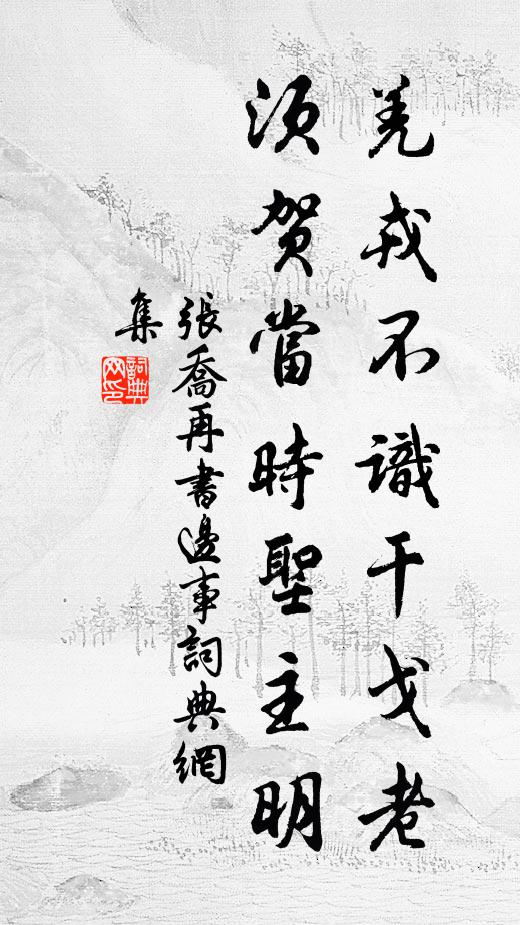 羌戎不識干戈老
須賀當時聖主明
張喬再書邊事詞典網
集
詞典
网印